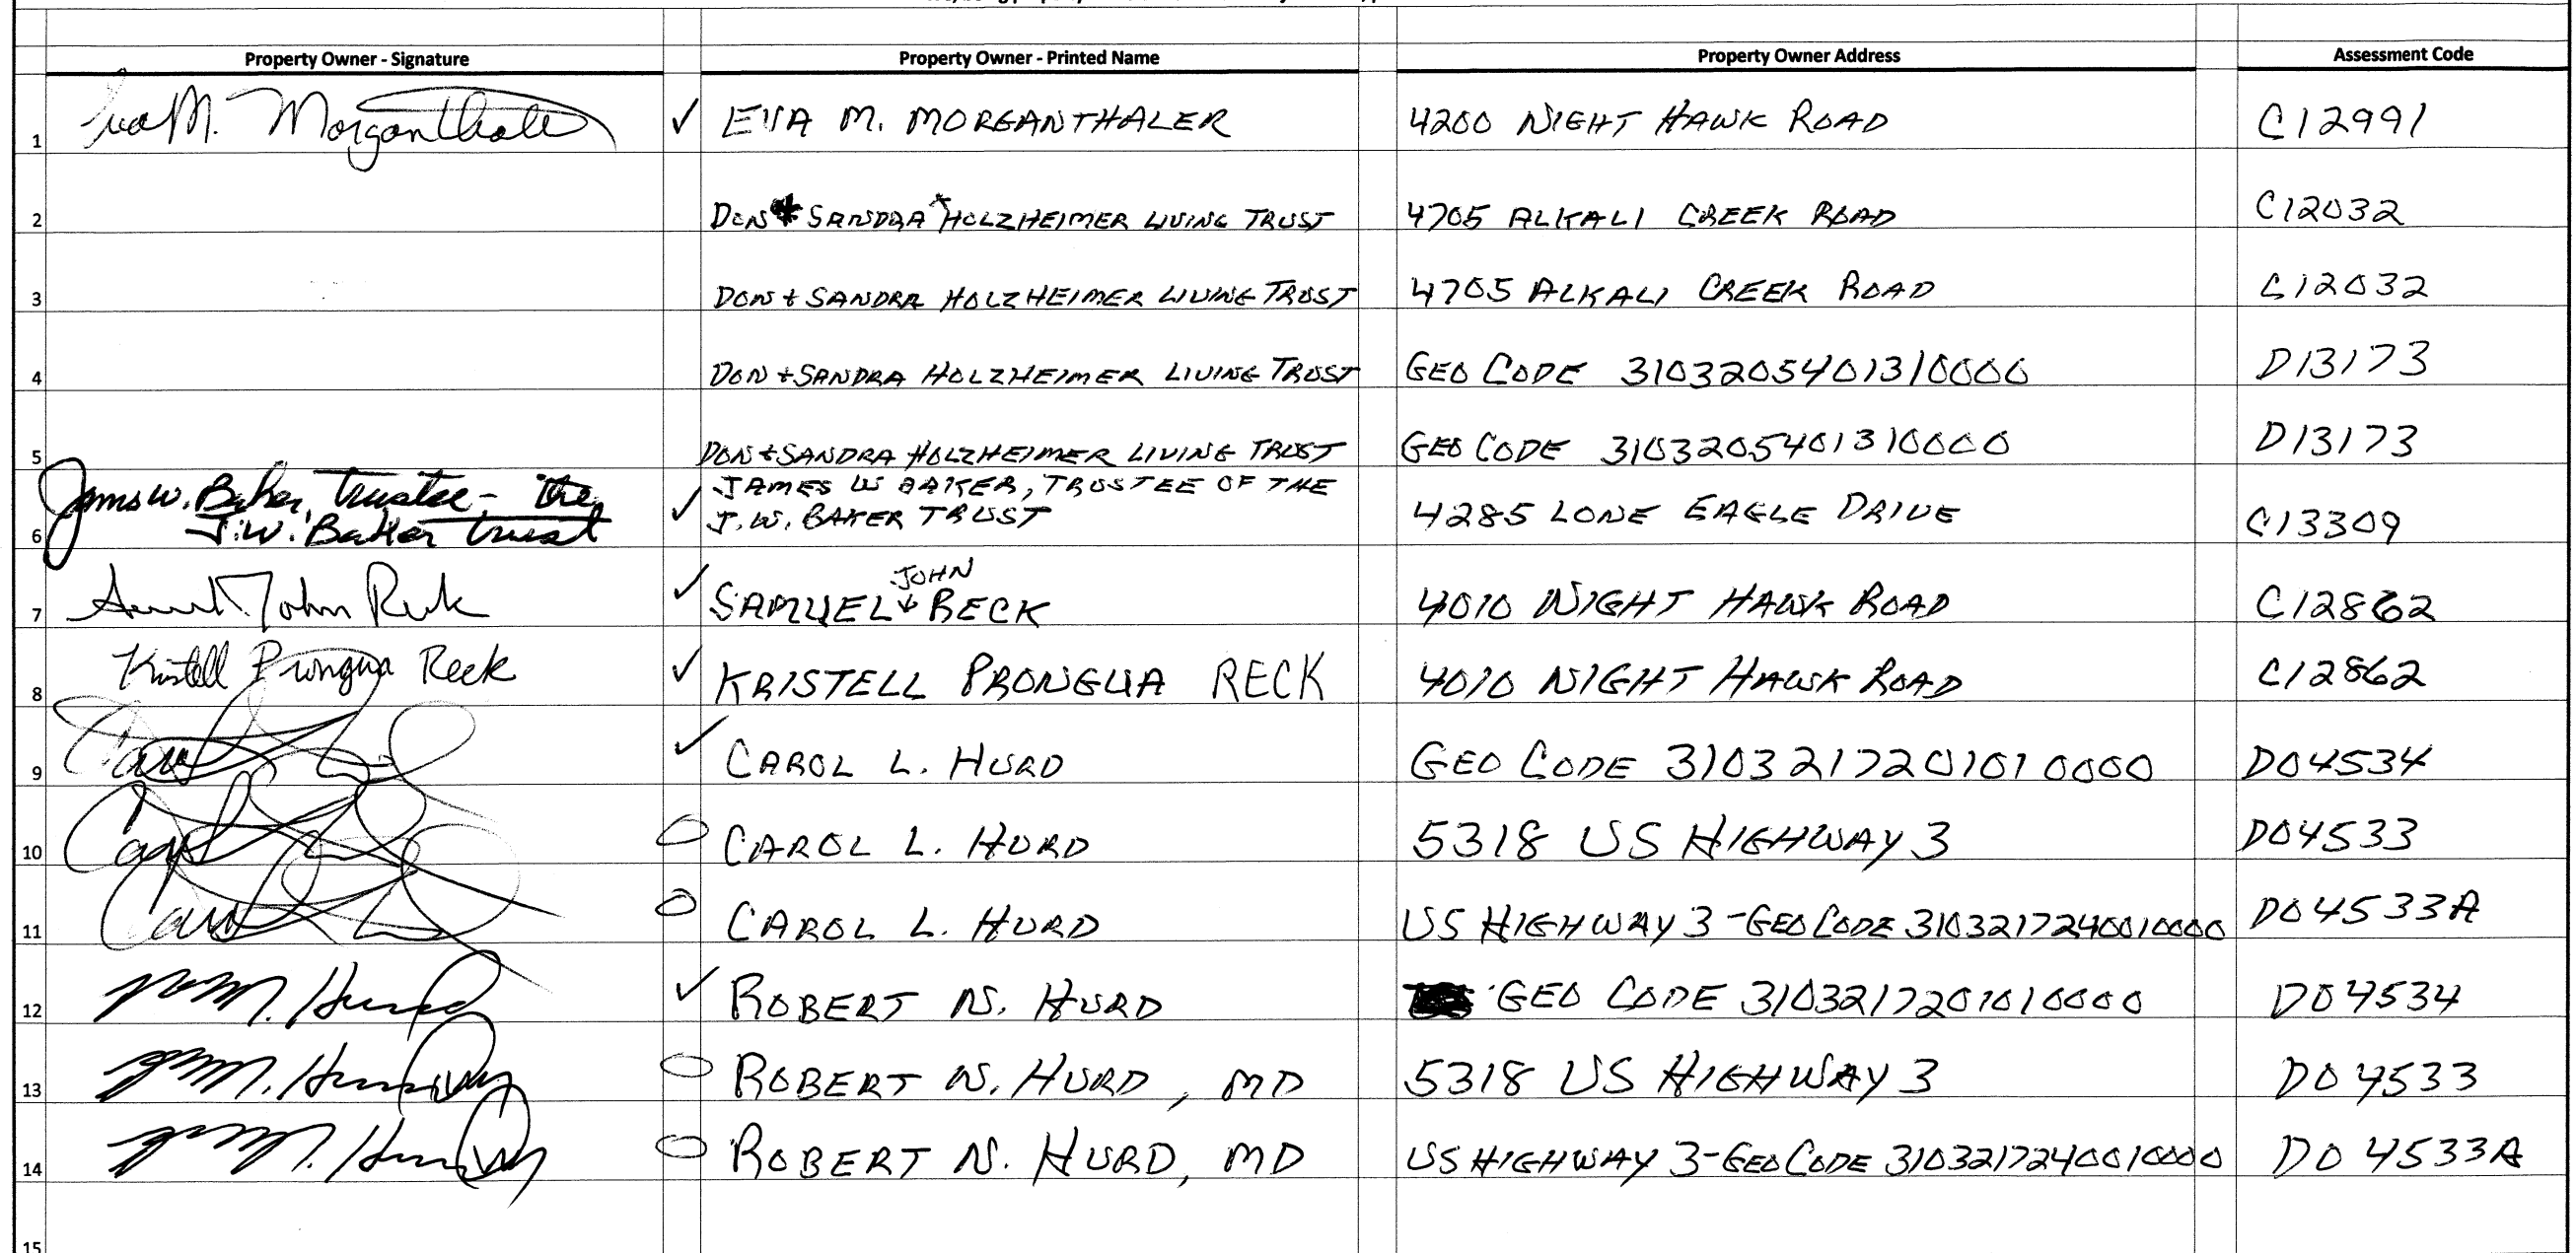 Property Owner - Signature Property Owner - Printed Name Property Owner Address Assessment Code
1 Eva M. Morganthaler ✓ EVA M. MORGANTHALER 4200 NIGHT HAWK ROAD C12991
2 DON SANDRA HOLZHEIMER LIVING TRUST 4705 ALKALI CREEK ROAD C12032
3 DON + SANDRA HOLZHEIMER LIVING TRUST 4705 ALKALI CREEK ROAD C12032
4 DON + SANDRA HOLZHEIMER LIVING TRUST GEO CODE 3103205401310000 D13173
5 DON + SANDRA HOLZHEIMER LIVING TRUST GEO CODE 3103205401310000 D13173
James W. Baker, trustee - the JAMES W BAKER, TRUSTEE OF THE
6 J.W. Baker trust ✓ J.W. BAKER TRUST 4285 LONE EAGLE DRIVE C13309
JOHN
7 John Reck ✓ SAMUEL RECK 4010 NIGHT HAWK ROAD C12862
8 Kristell Prongua Reck ✓ KRISTELL PRONGUA RECK 4010 NIGHT HAWK ROAD C12862
9 Carol ✓ CAROL L. HURD GEO CODE 3103217201010000 D04534
10 Carol CAROL L. HURD 5318 US HIGHWAY 3 D04533
11 Carol CAROL L. HURD US HIGHWAY 3 - GEO CODE 3103217240010000 D04533A
12 Hurd ✓ ROBERT N. HURD GEO CODE 3103217201010000 D04534
13 Hurd ROBERT N. HURD, MD 5318 US HIGHWAY 3 D04533
14 Hurd ROBERT N. HURD, MD US HIGHWAY 3 - GEO CODE 3103217240010000 D04533A
15